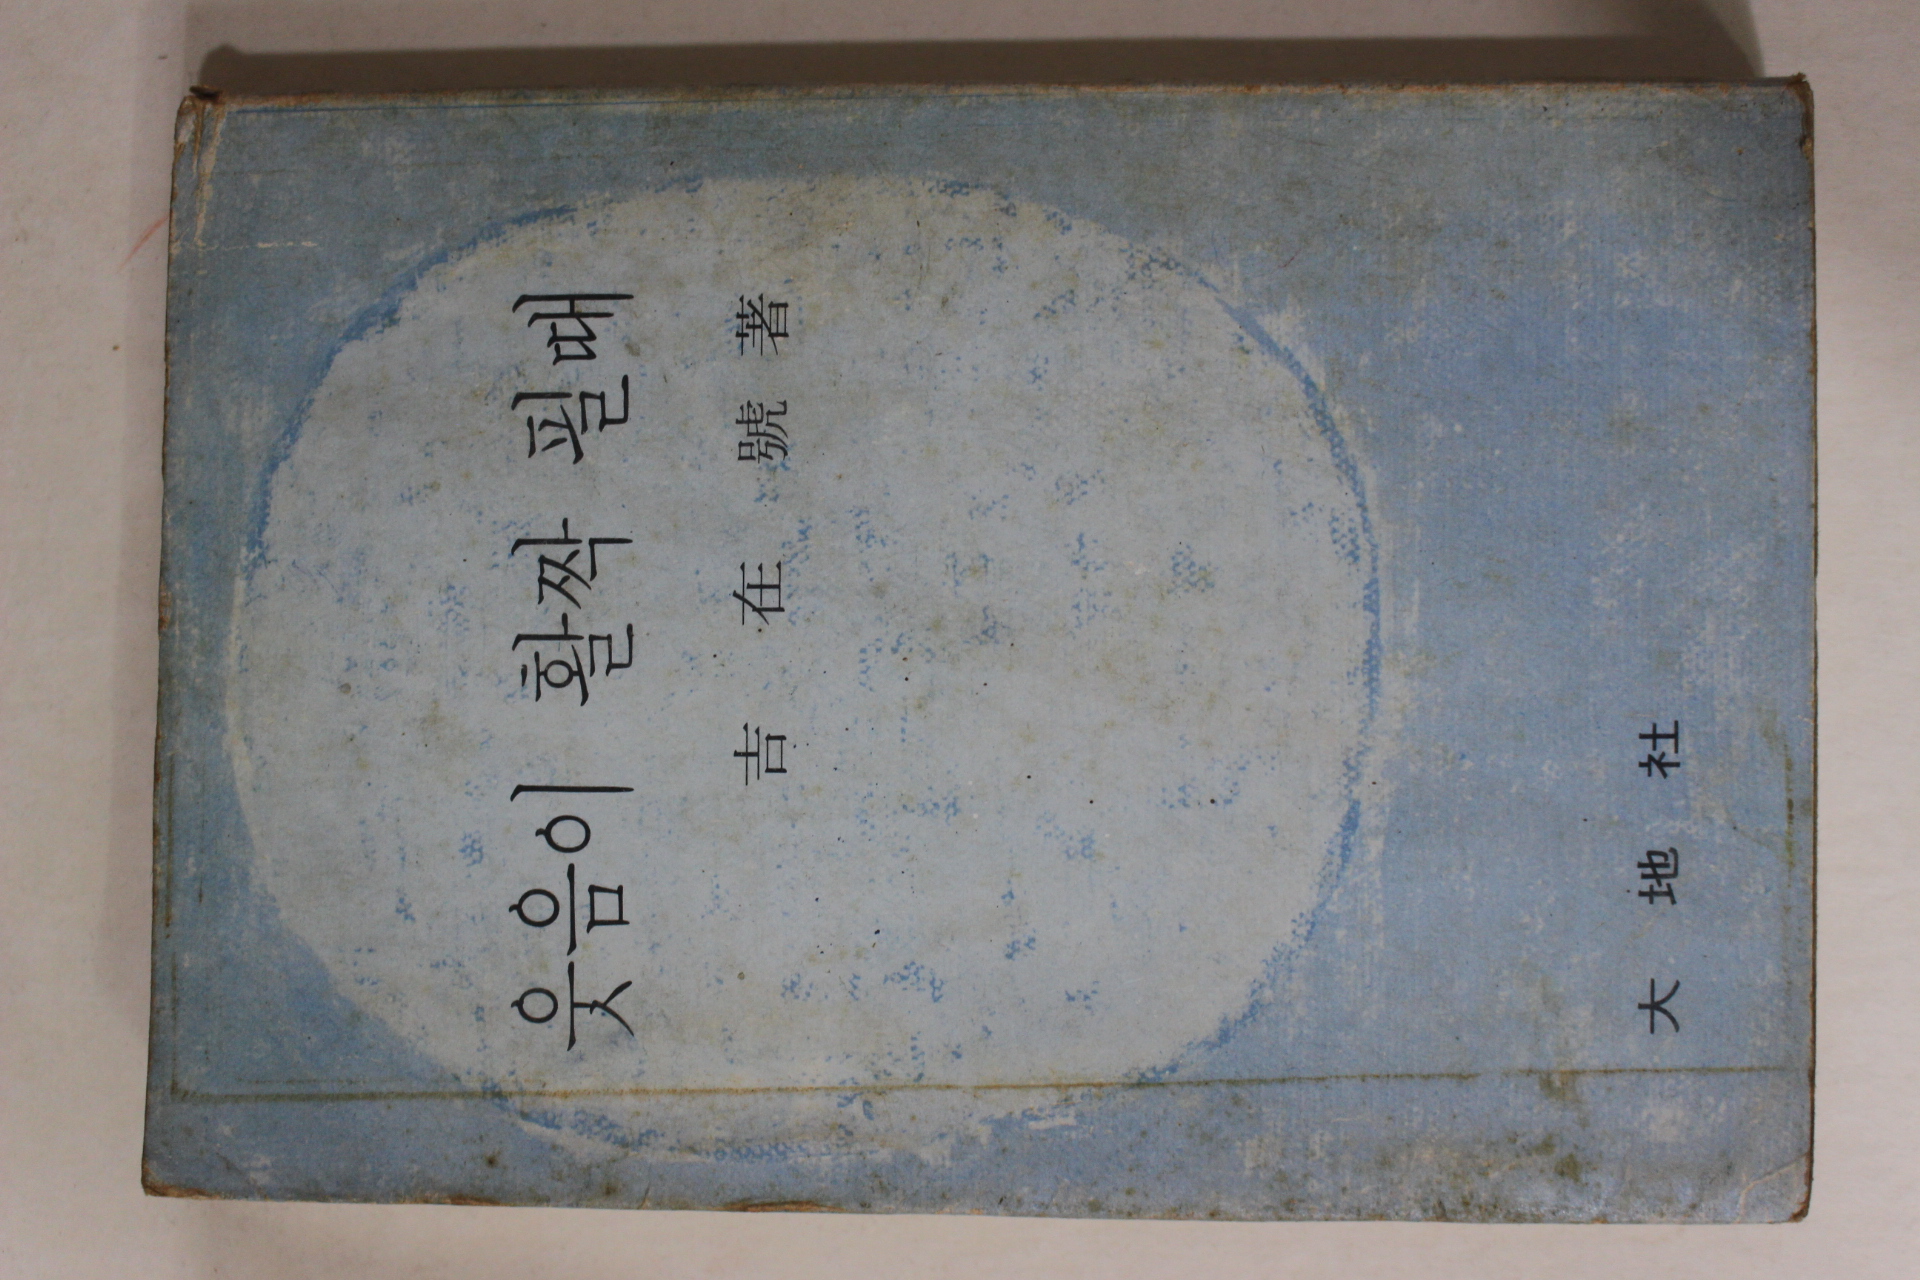 웃음이 활짝 필때
吉在號 著
大地社